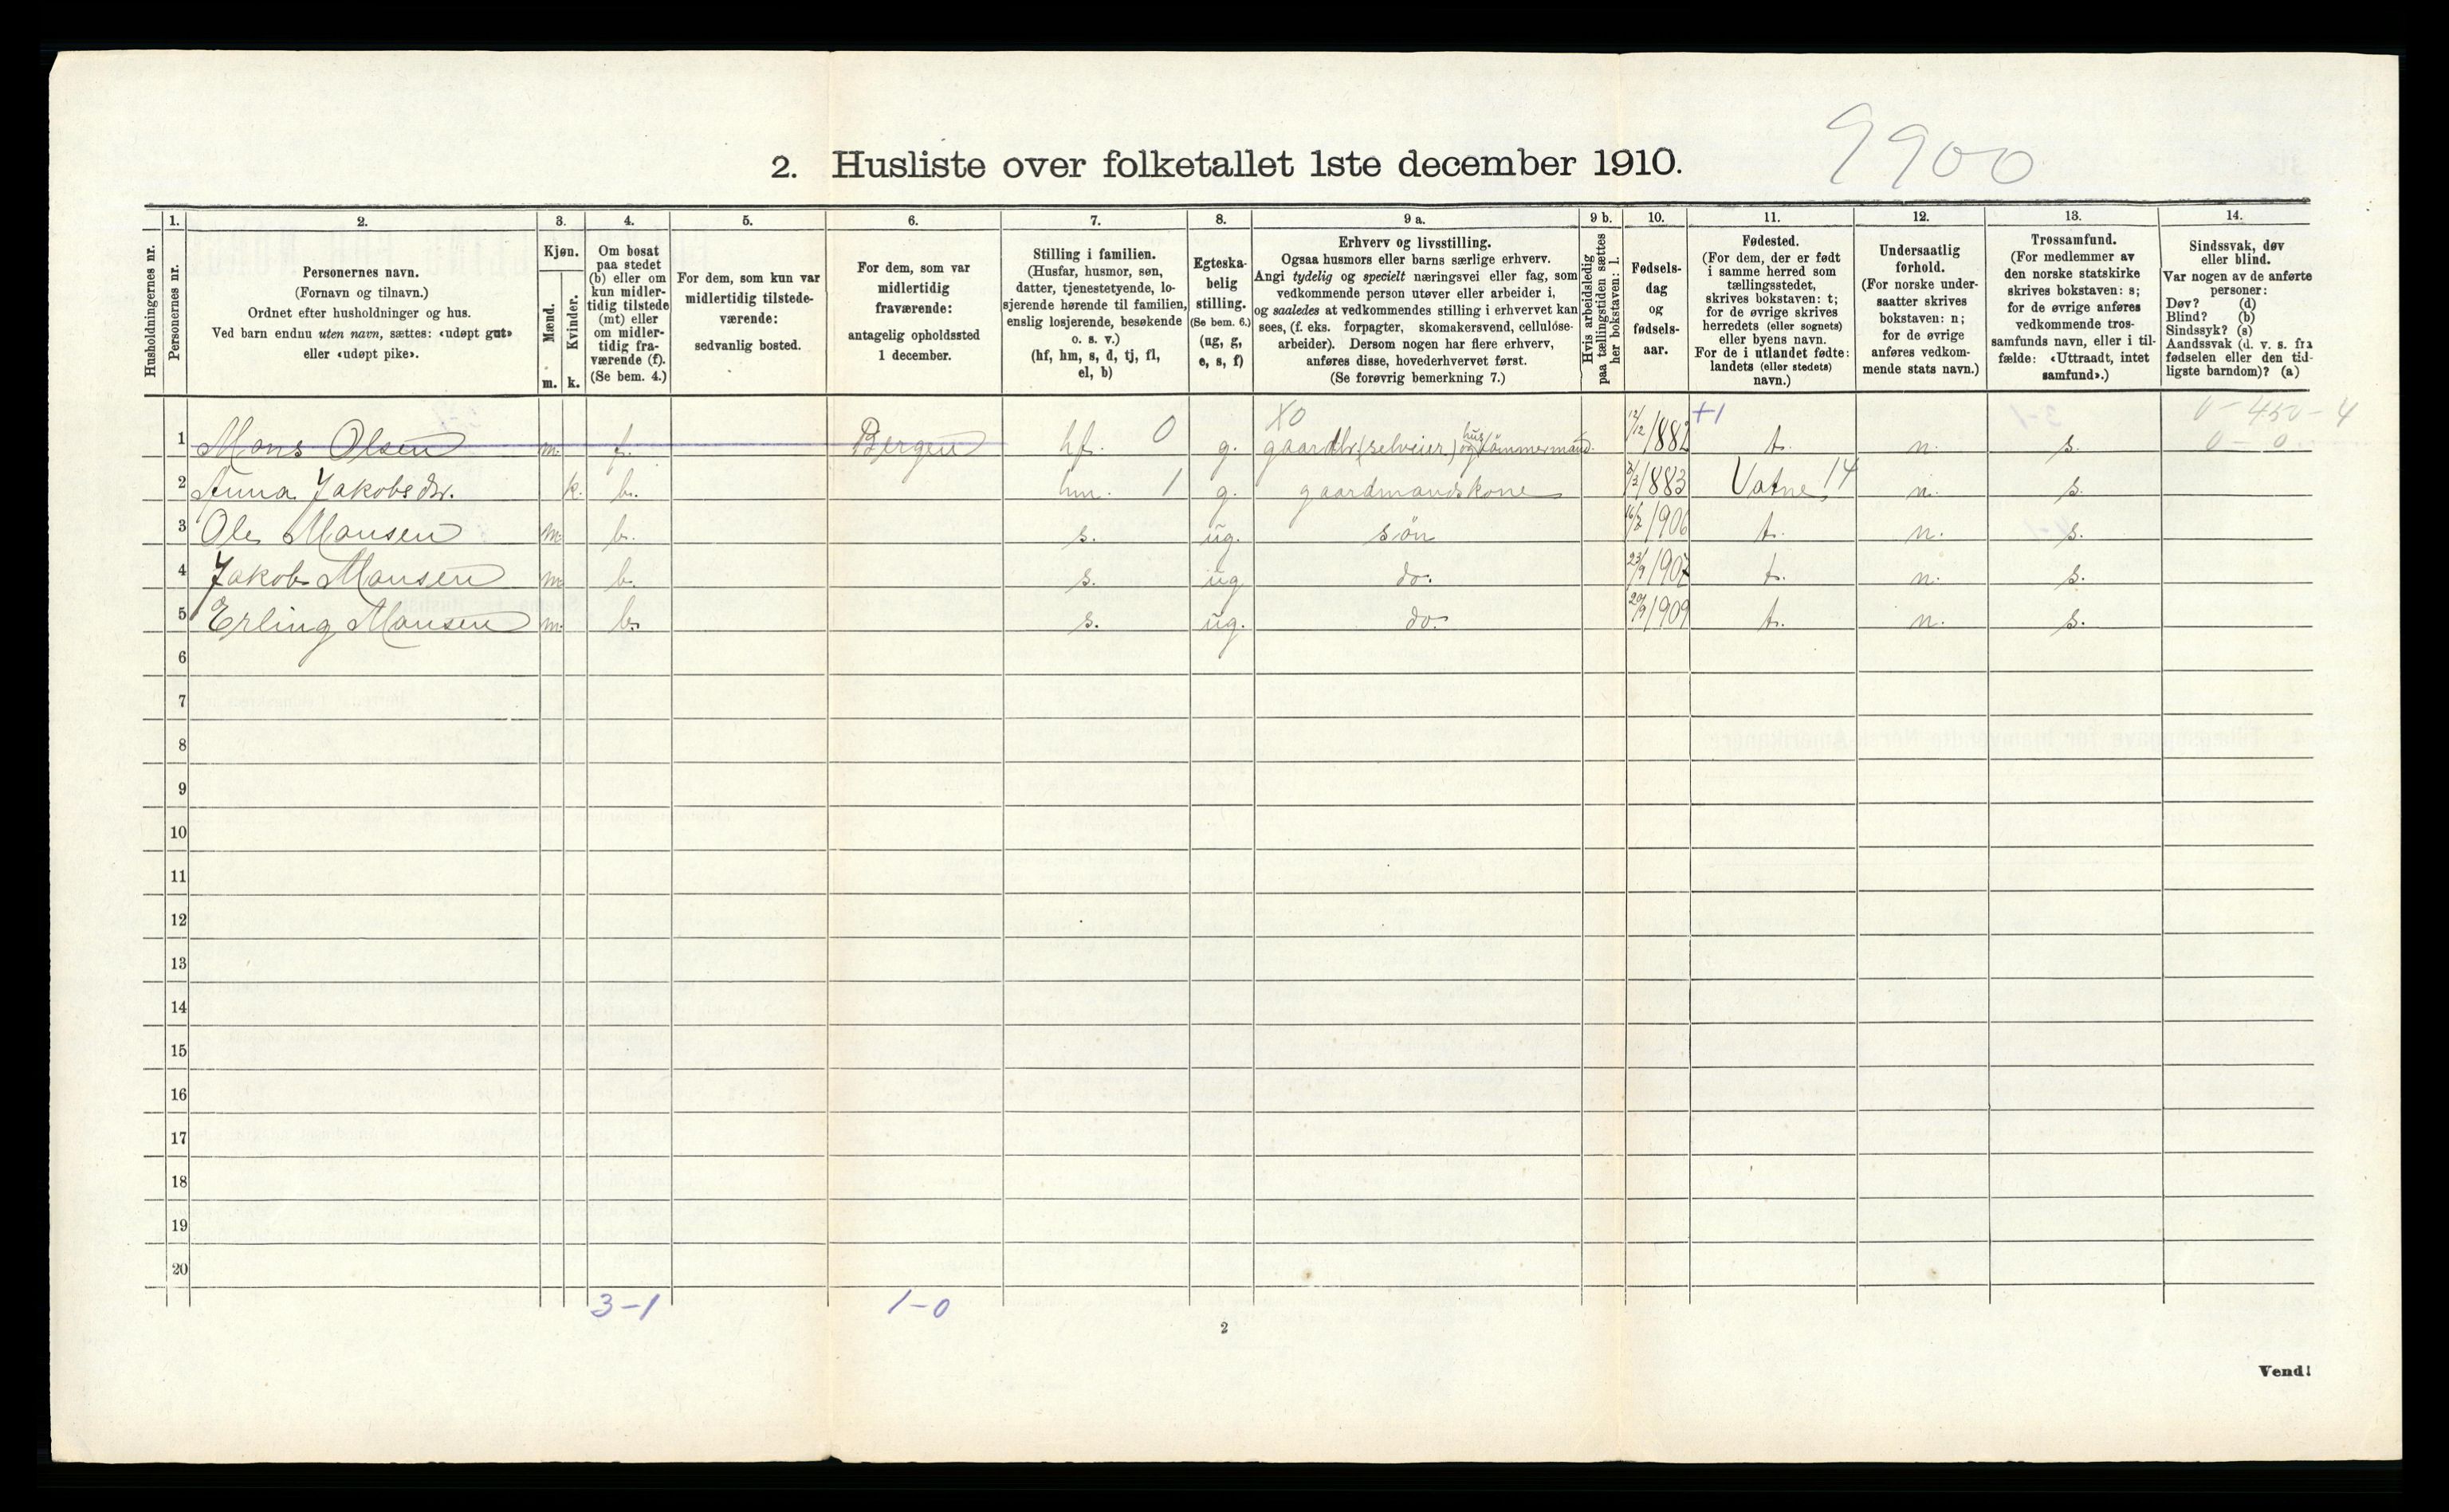 9900
2. Husliste over folketallet 1ste december 1910.
Husholdningernes nr.
1.
Personernes nr.
2.
Personernes navn.
(Fornavn og tilnavn.)
Ordnet efter husholdninger og hus.
Ved barn endnu uten navn, sættes: «udøpt gut»
eller «udøpt pike».
3.
Kjøn.
Mænd.
m.
Kvinder.
k.
4.
Om bosat
paa stedet
(b) eller om
kun midler-
tidig tilstede
(mt) eller
om midler-
tidig fra-
værende (f).
(Se bem. 4.)
5.
For dem, som kun var
midlertidig tilstede-
værende:
sedvanlig bosted.
6.
For dem, som var
midlertidig
fraværende:
antagelig opholdssted
1 december.
7.
Stilling i familien.
(Husfar, husmor, søn,
datter, tjenestetyende, lo-
sjerende hørende til familien,
enslig losjerende, besøkende
o. s. v.)
(hf, hm, s, d, tj, fl,
el, b)
8.
Egteska-
belig
stilling.
(Se bem. 6.)
(ug, g,
e, s, f)
9 a.
Erhverv og livsstilling.
Ogsaa husmors eller barns særlige erhverv.
Angi tydelig og specielt næringsvei eller fag, som
vedkommende person utøver eller arbeider i,
og saaledes at vedkommendes stilling i erhvervet kan
sees, (f. eks. forpagter, skomakersvend, cellulöse-
arbeider). Dersom nogen har flere erhverv,
anføres disse, hovederhvervet først.
(Se forøvrig bemerkning 7.)
9 b.
Hvis arbeidsledig
paa tællingstiden sættes
her bokstaven: l.
10.
Fødsels-
dag
og
fødsels-
aar.
11.
Fødested.
(For dem, der er født
i samme herred som
tællingsstedet,
skrives bokstaven: t;
for de øvrige skrives
herredets (eller sognets)
eller byens navn.
For de i utlandet fødte:
landets (eller stedets)
navn.)
12.
Undersaatlig
forhold.
(For norske under-
saatter skrives
bokstaven: n;
for de øvrige
anføres vedkom-
mende stats navn.)
13.
Trossamfund.
(For medlemmer av
den norske statskirke
skrives bokstaven: s;
for de øvrige anføres
vedkommende tros-
samfunds navn, eller i til-
fælde: «Uttraadt, intet
samfund».)
14.
Sindssvak, døv
eller blind.
Var nogen av de anførte
personer:
Døv? (d)
Blind? (b)
Sindssyk? (s)
Aandssvak (d. v. s. fra
fødselen eller den tid-
ligste barndom)? (a)
X0 +1 0-450-4
1 Mons Olsen m. f. Bergen hf. 0 g. gaardbr. (selveier) og hustömmermand. 12/12 1882 t. n. s. 0-0
2 Anna Jakobsdr. k. b. hm. 1 g. gaardmandskone 1883 Vatne 14 n. s.
3 Ole Monsen m. b. s. ug. sön 16/2 1906 t. n. s.
4 Jakob Monsen m. b. s. ug. do. 23/9 1907 t. n. s.
5 Erling Monsen m. b. s. ug. do. 20/9 1909 t. n. s.
6
7
8
9
10
11
12
13
14
15
16
17
18
19
20
3-1 1-0
2
Vend!